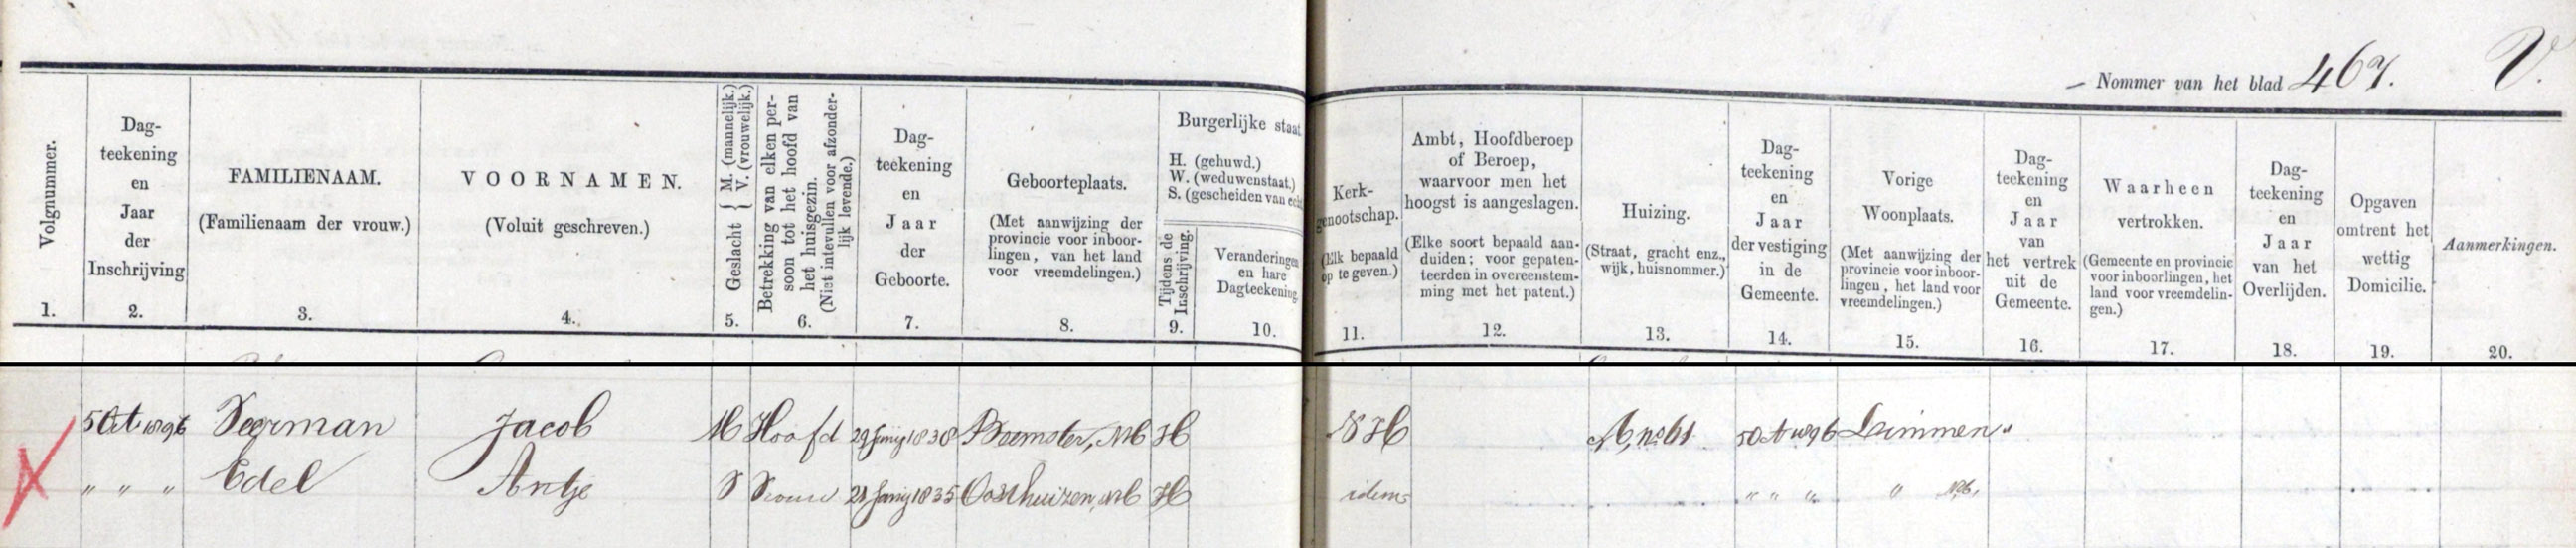 Nommer van het blad 467. V.
Volgnummer.
1.
Dag-
teekening
en
Jaar
der
Inschrijving
2.
FAMILIENAAM.
(Familienaam der vrouw.)
3.
VOORNAMEN.
(Voluit geschreven.)
4.
Geslacht { M. (mannelijk.)
V. (vrouwelijk.)
5.
Betrekking van elken per-
soon tot het hoofd van
het huisgezin.
(Niet intevullen voor afzonder-
lijk levende.)
6.
Dag-
teekening
en
Jaar
der
Geboorte.
7.
Geboorteplaats.
(Met aanwijzing der
provincie voor inboor-
lingen, van het land
voor vreemdelingen.)
8.
Burgerlijke staat
H. (gehuwd.)
W. (weduwenstaat.)
S. (gescheiden van ech
Tijdens de
Inschrijving.
9.
Veranderingen
en hare
Dagteekening.
10.
Kerk-
genootschap.
(Elk bepaald
op te geven.)
11.
Ambt, Hoofdberoep
of Beroep,
waarvoor men het
hoogst is aangeslagen.
(Elke soort bepaald aan-
duiden; voor gepaten-
teerden in overeenstem-
ming met het patent.)
12.
Huizing.
(Straat, gracht enz.,
wijk, huisnommer.)
13.
Dag-
teekening
en
Jaar
der vestiging
in de
Gemeente.
14.
Vorige
Woonplaats.
(Met aanwijzing der
provincie voor inboor-
lingen, het land voor
vreemdelingen.)
15.
Dag-
teekening
en
Jaar
van
het vertrek
uit de
Gemeente.
16.
Waarheen
vertrokken.
(Gemeente en provincie
voor inboorlingen, het
land voor vreemdelin-
gen.)
17.
Dag-
teekening
en
Jaar
van het
Overlijden.
18.
Opgaven
omtrent het
wettig
Domicilie.
19.
Aanmerkingen.
20.
5 Oct. 1896 Veerman Jacob M Hoofd 29 Junij 1838 Beemster, NH H NH A, no 61 5 Oct 1896 Limmen "
" " " Edel Antje V Vrouw 21 Junij 1835 Oosthuizen, NH H idem " " " "